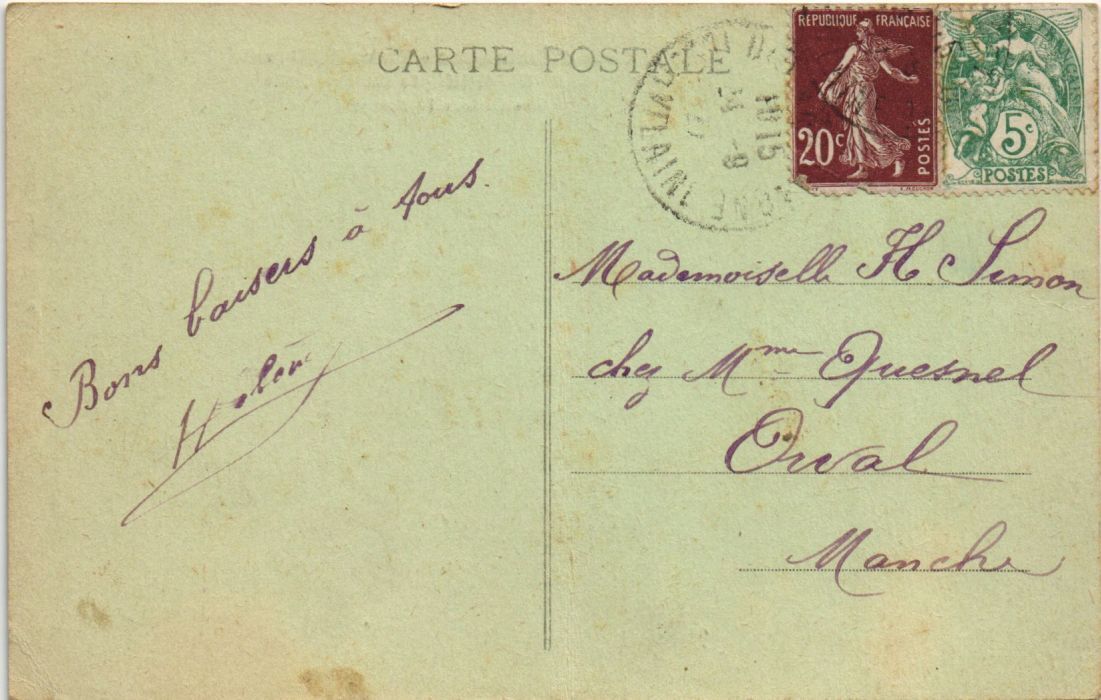 CARTE POSTALE
RÉPUBLIQUE FRANÇAISE
20c
POSTES
5c
POSTES
10 15
Bons baisers à tous.
Mademoiselle H Simon
chez Mme Quesnel
Orval
Manche